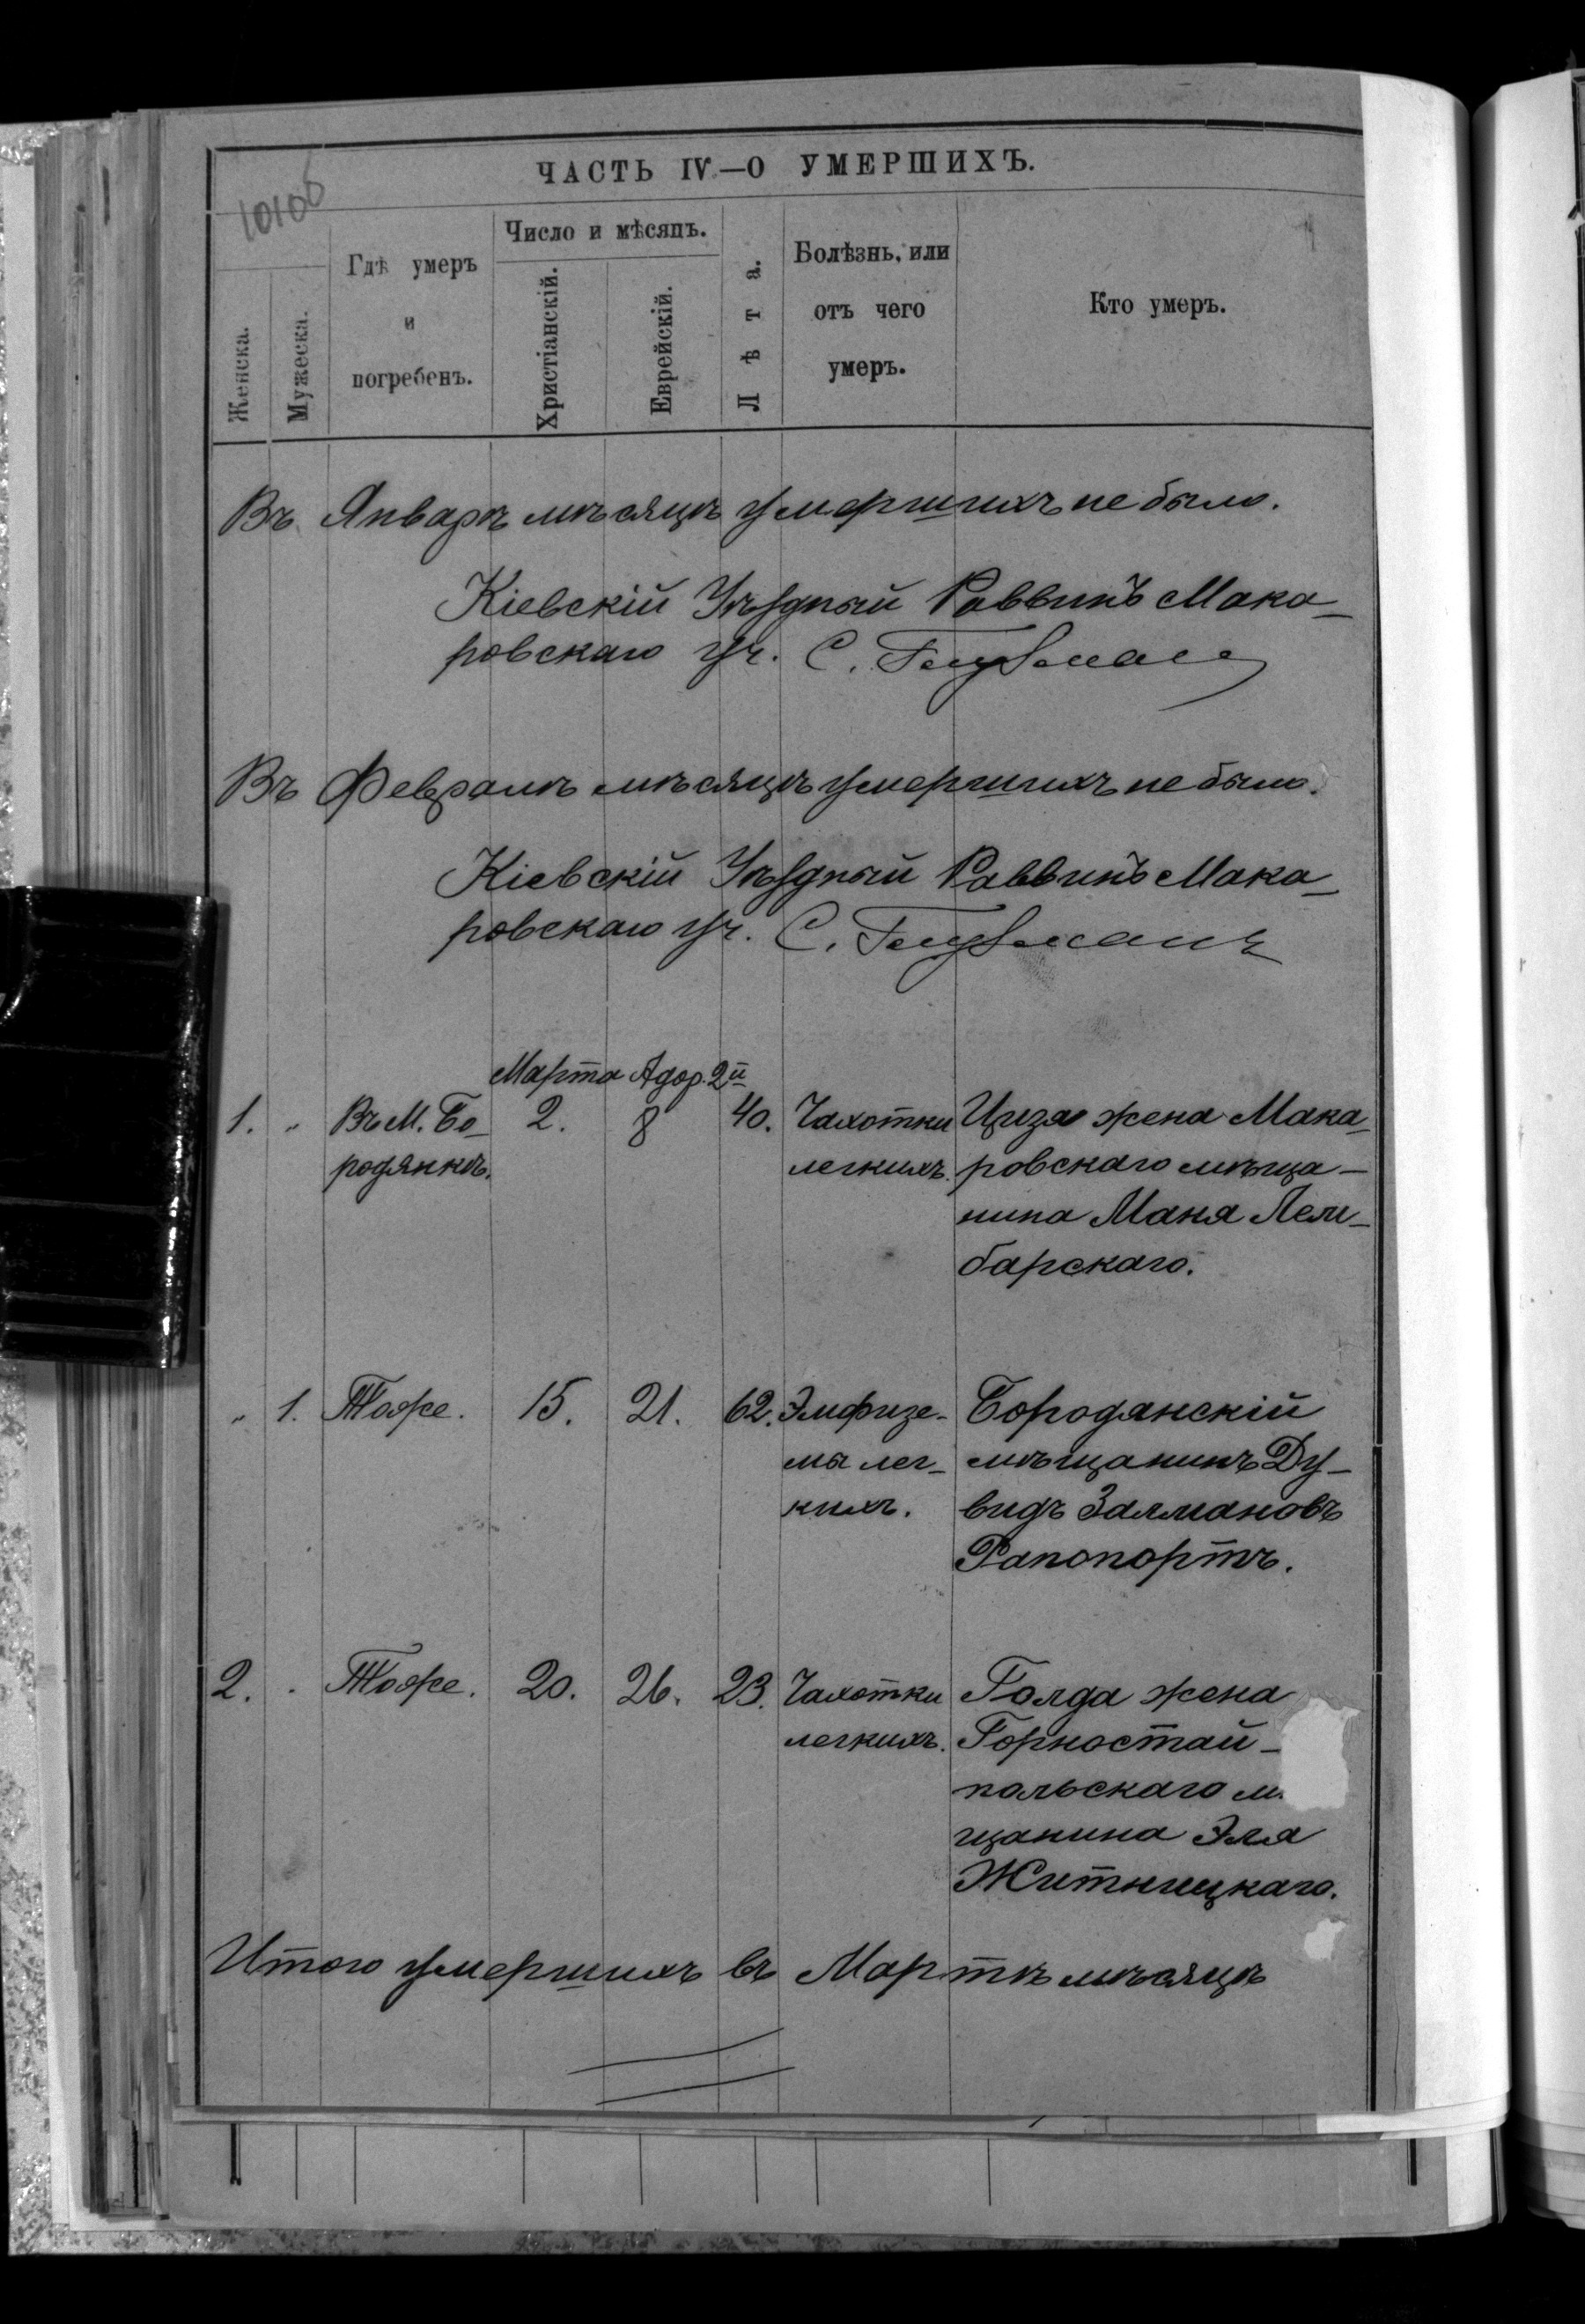 ЧАСТЬ IV.—О УМЕРШИХЪ.
1010б
Женска.
Мужеска.
Гдѣ умеръ
и
погребенъ.
Число и мѣсяцъ.
Христіанскій.
Еврейскій.
Лѣта.
Болѣзнь, или
отъ чего
умеръ.
Кто умеръ.
Въ Январѣ мѣсяцѣ умершихъ не было.
Кіевскій Уѣздный Раввинъ Мака-
ровскаго уч. С. Гецзман
Въ Февралѣ мѣсяцѣ умершихъ не было.
Кіевскій Уѣздный Раввинъ Мака-
ровскаго уч. С. Гецзманъ
Марта Адор. 2й
1. „ Въ М. Бо- 2. 8 40. Чахотки Циза жена Мака-
родянкѣ. легкихъ. ровскаго мѣща-
нина Маня Лем-
барскаго.
„ 1. Тоже. 15. 21. 62. Эмфизе- Бородянскій
мы лег- мѣщанинъ Ду-
кихъ. видъ Залмановъ
Рапопортъ.
2. „ Тоже. 20. 26. 23. Чахотки Голда жена
легкихъ. Горностай-
польскаго м
щанина Эля
Житницкаго.
Итого умершихъ въ Мартѣ мѣсяцѣ